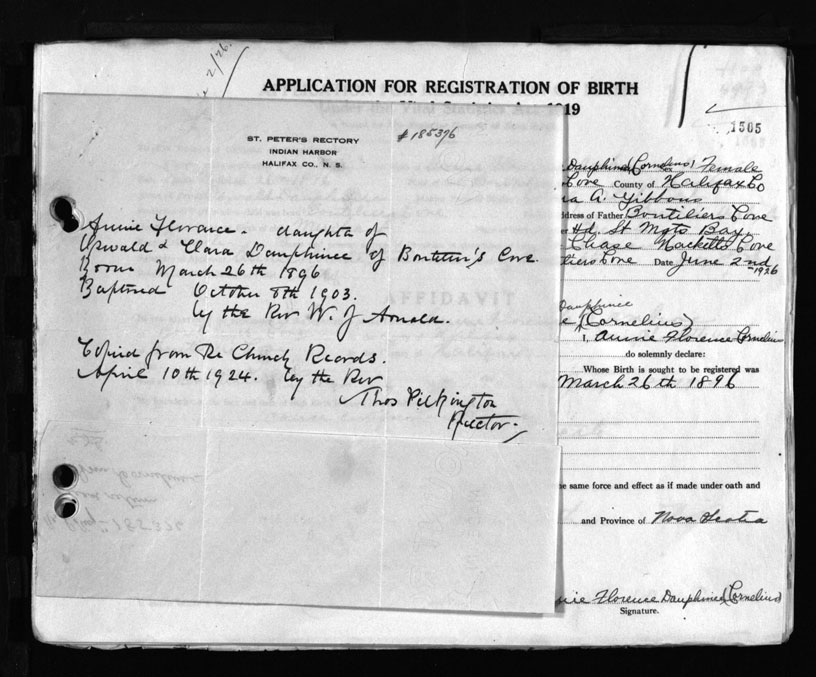 2/26.
APPLICATION FOR REGISTRATION OF BIRTH
19
1505
ST. PETER'S RECTORY
INDIAN HARBOR
HALIFAX CO., N. S.
#185396
Annie Florance. daughter of
Oswald & Clara Dauphinee of Boutilier's Cove.
Born March 26th 1896
Baptized October 8th 1903.
by the Rev W. J Arnold.
Copied from the Church Records.
April 10th 1924. by the Rev
Thos Pilkington
Rector.
Dauphinee (Cornelius) Female
Cove County of Halifax Co
ra A. Gibbons
ddress of Father Boutiliers Cove
Hd. St Mgts Bay
Chase Hacketts Cove
tiers Cove Date June 2nd
1926
AFFIDAVIT
Dauphinee
e (Cornelius)
I, Annie Florence Cornelius
do solemnly declare:
Whose Birth is sought to be registered was
March 26th 1896
he same force and effect as if made under oath and
and Province of Nova Scotia
nie Florence Dauphinee (Cornelius)
Signature.